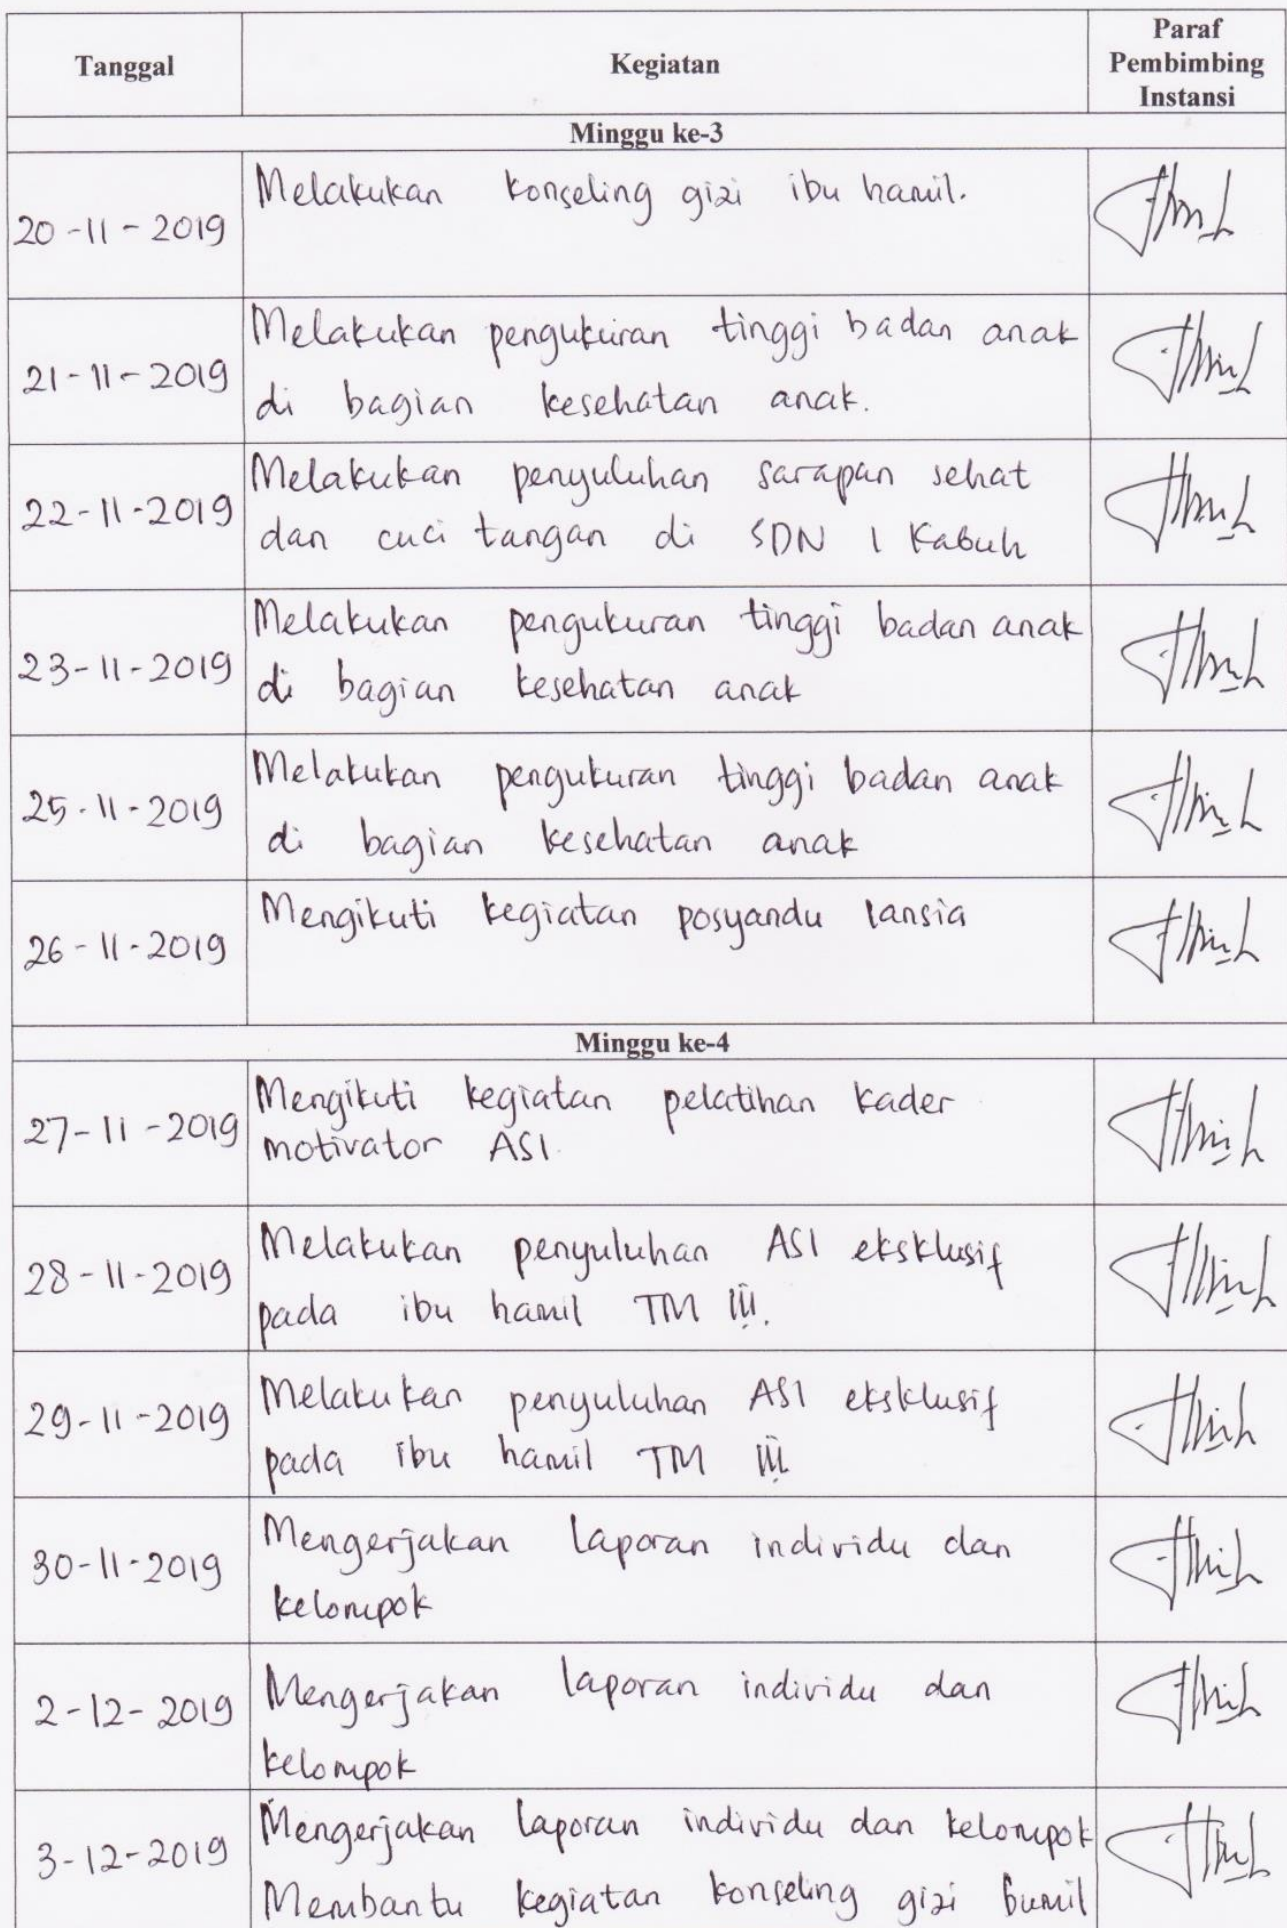 Tanggal
Kegiatan
Paraf
Pembimbing
Instansi
Minggu ke-3
20-11-2019
Melakukan konseling gizi ibu hamil.
21-11-2019
Melakukan pengukuran tinggi badan anak
di bagian kesehatan anak.
22-11-2019
Melakukan penyuluhan sarapan sehat
dan cuci tangan di SDN 1 Kabuh
23-11-2019
Melakukan pengukuran tinggi badan anak
di bagian kesehatan anak
25-11-2019
Melakukan pengukuran tinggi badan anak
di bagian kesehatan anak
26-11-2019
Mengikuti kegiatan posyandu lansia
Minggu ke-4
27-11-2019
Mengikuti kegiatan pelatihan kader
motivator ASI.
28-11-2019
Melakukan penyuluhan ASI eksklusif
pada ibu hamil TM III.
29-11-2019
Melakukan penyuluhan ASI eksklusif
pada ibu hamil TM III
30-11-2019
Mengerjakan laporan individu dan
kelompok
2-12-2019
Mengerjakan laporan individu dan
kelompok
3-12-2019
Mengerjakan laporan individu dan kelompok
Membantu kegiatan konseling gizi bumil